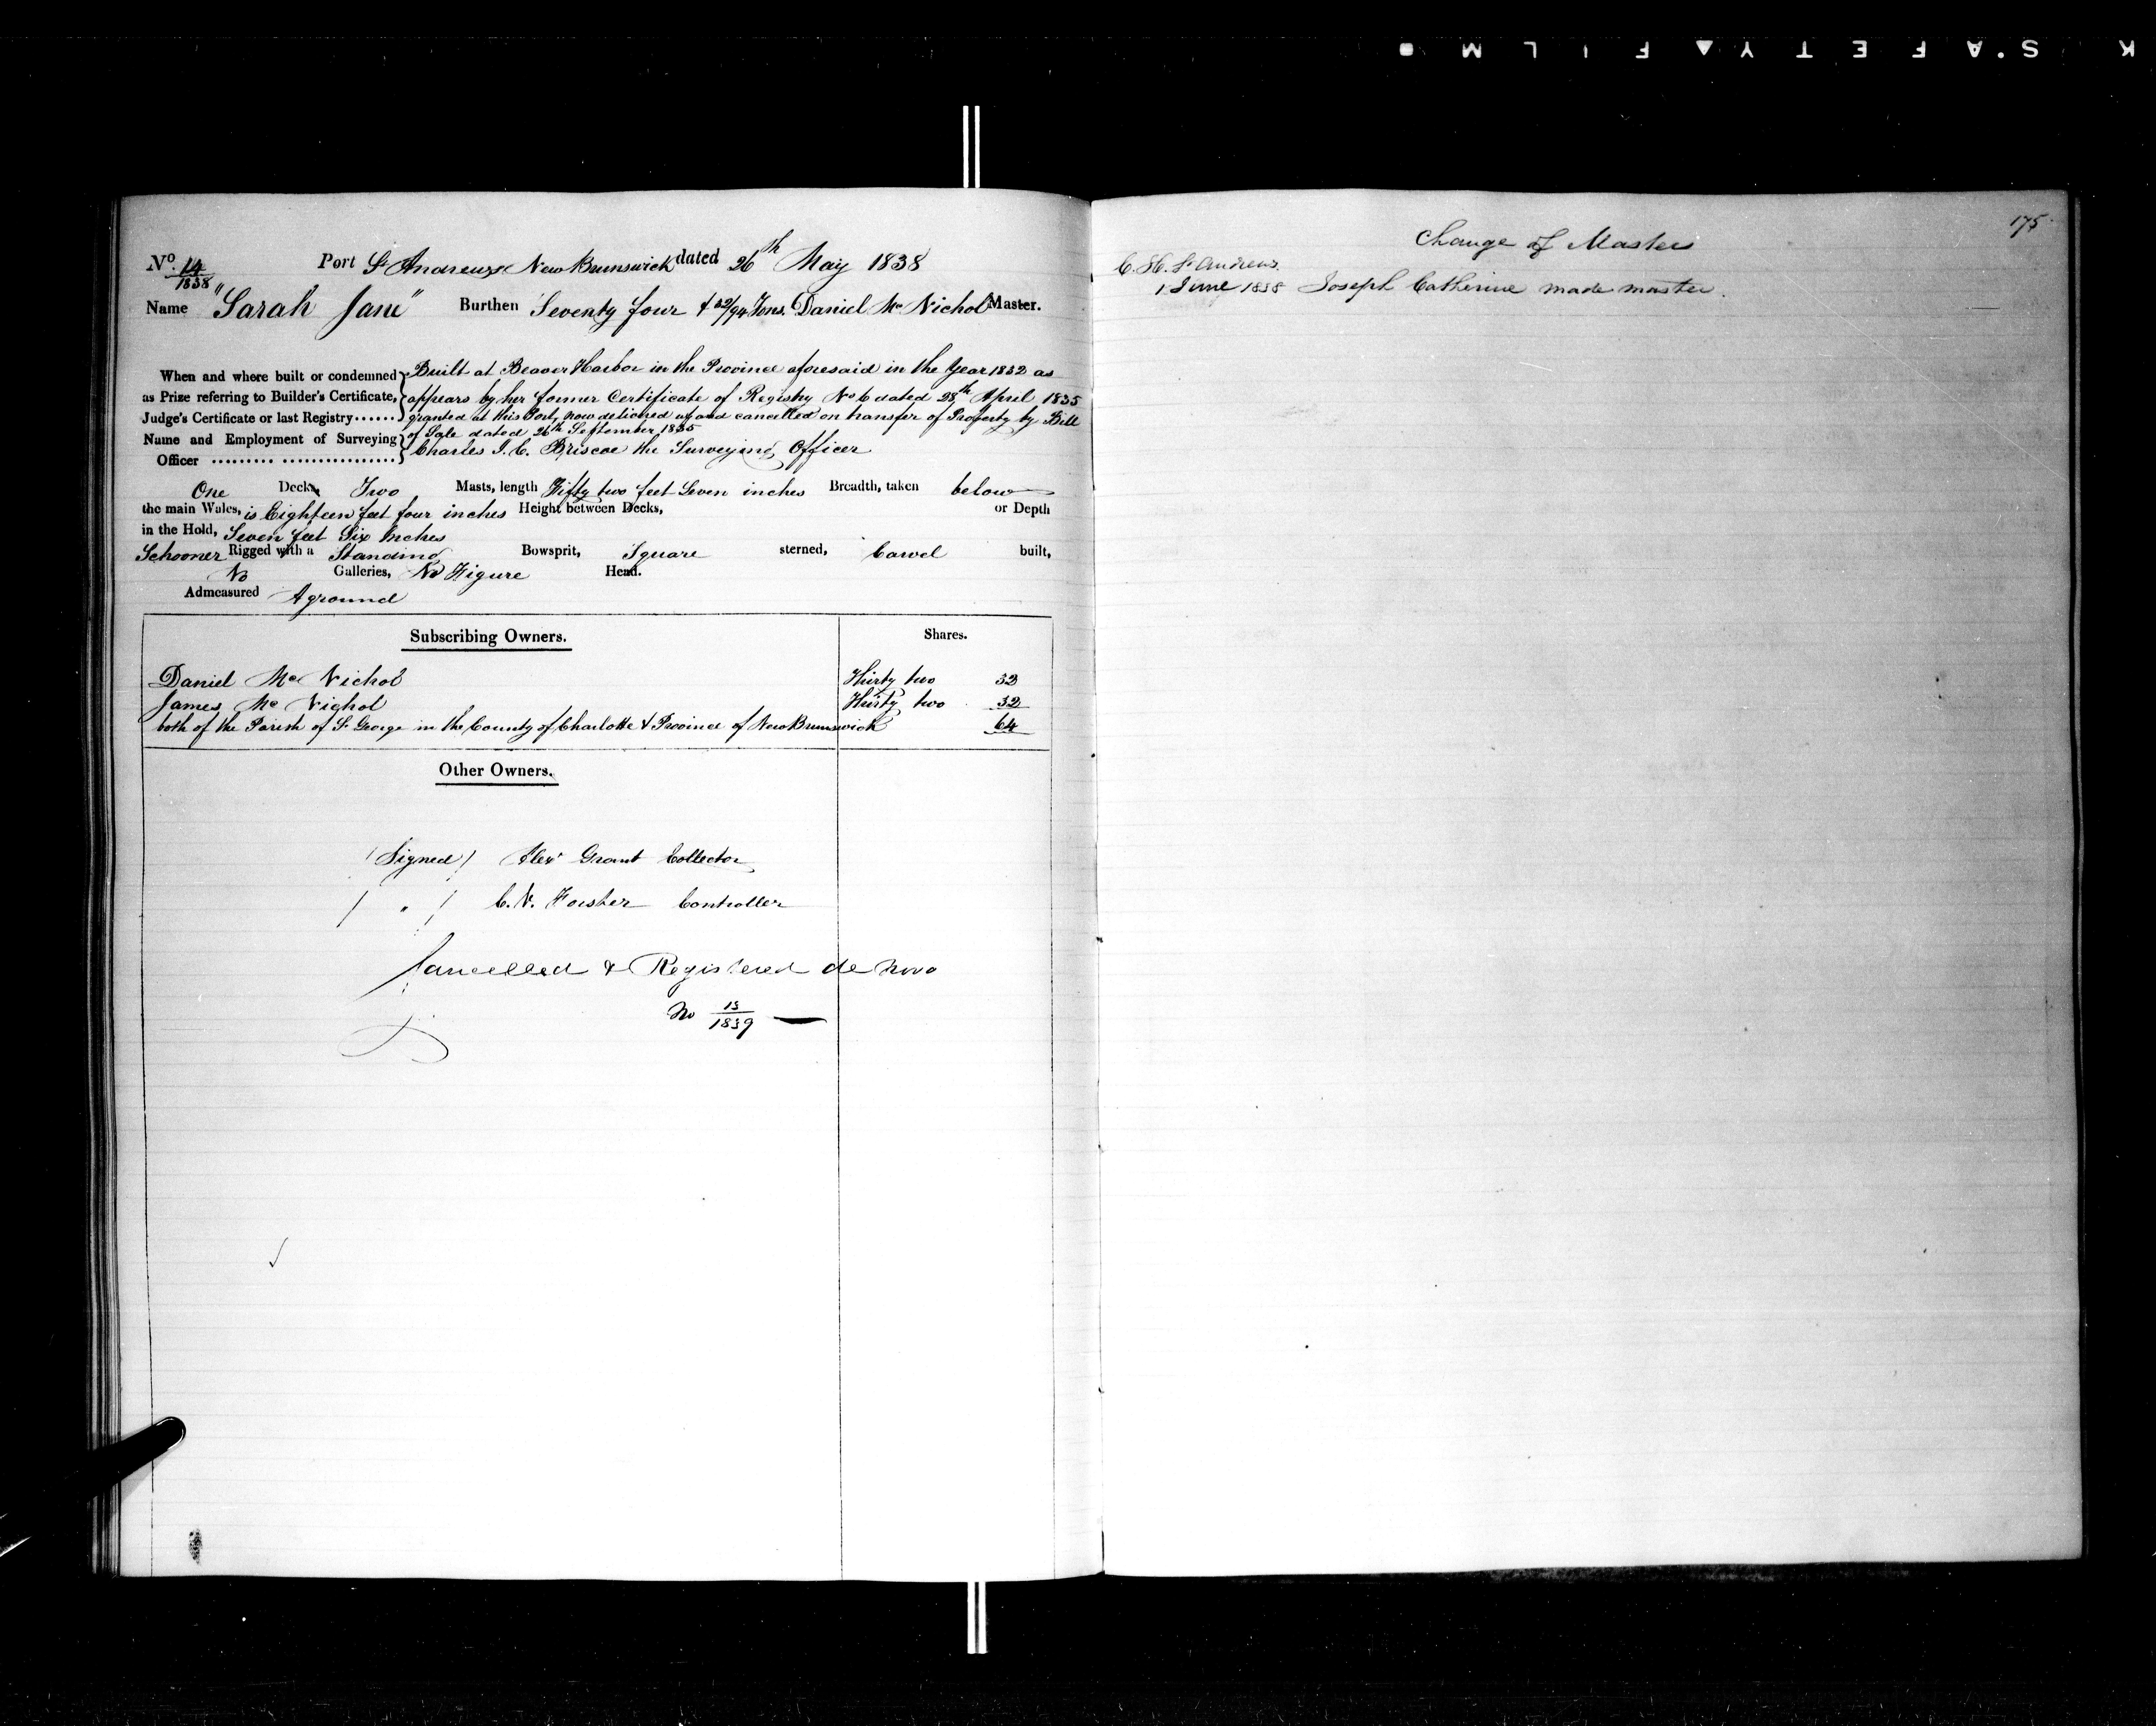 K S.AFETY▲FILM■
No. 14/1838 Port St Andrews New Brunswick dated 26th May 1838
Name "Sarah Jane" Burthen Seventy four & 22/94 Tons. Daniel Mc Nichol Master.
When and where built or condemned as Prize referring to Builder's Certificate, Judge's Certificate or last Registry......
Built at Beaver Harbor in the Province aforesaid in the Year 1832 as
appears by her former Certificate of Registry No 6 dated 28th April 1835
granted at this Port, now delivered up and cancelled on transfer of Property by Bill
of Sale dated 26th September 1835
Name and Employment of Surveying Officer ......... ................
Charles J. C. Briscoe the Surveying Officer
One Decks Two Masts, length Fifty two feet Seven inches Breadth, taken below
the main Wales, is Eighteen feet four inches Height between Decks, or Depth
in the Hold, Seven feet Six Inches
Schooner Rigged with a Standing Bowsprit, Square sterned, Carvel built,
No Galleries, No Figure Head.
Admeasured Aground
Subscribing Owners. Shares.
Daniel Mc Nichol Thirty two 32
James Mc Nichol Thirty two 32
both of the Parish of St George in the County of Charlotte & Province of New Brunswick 64
Other Owners.
(Signed) Alexr Grant Collector
( " ) C. N. Forster Controller
Cancelled & Registered de novo
No 13/1839 —
175
Change of Masters
C. H. St Andrews.
1 June 1838 Joseph Catherine made master.